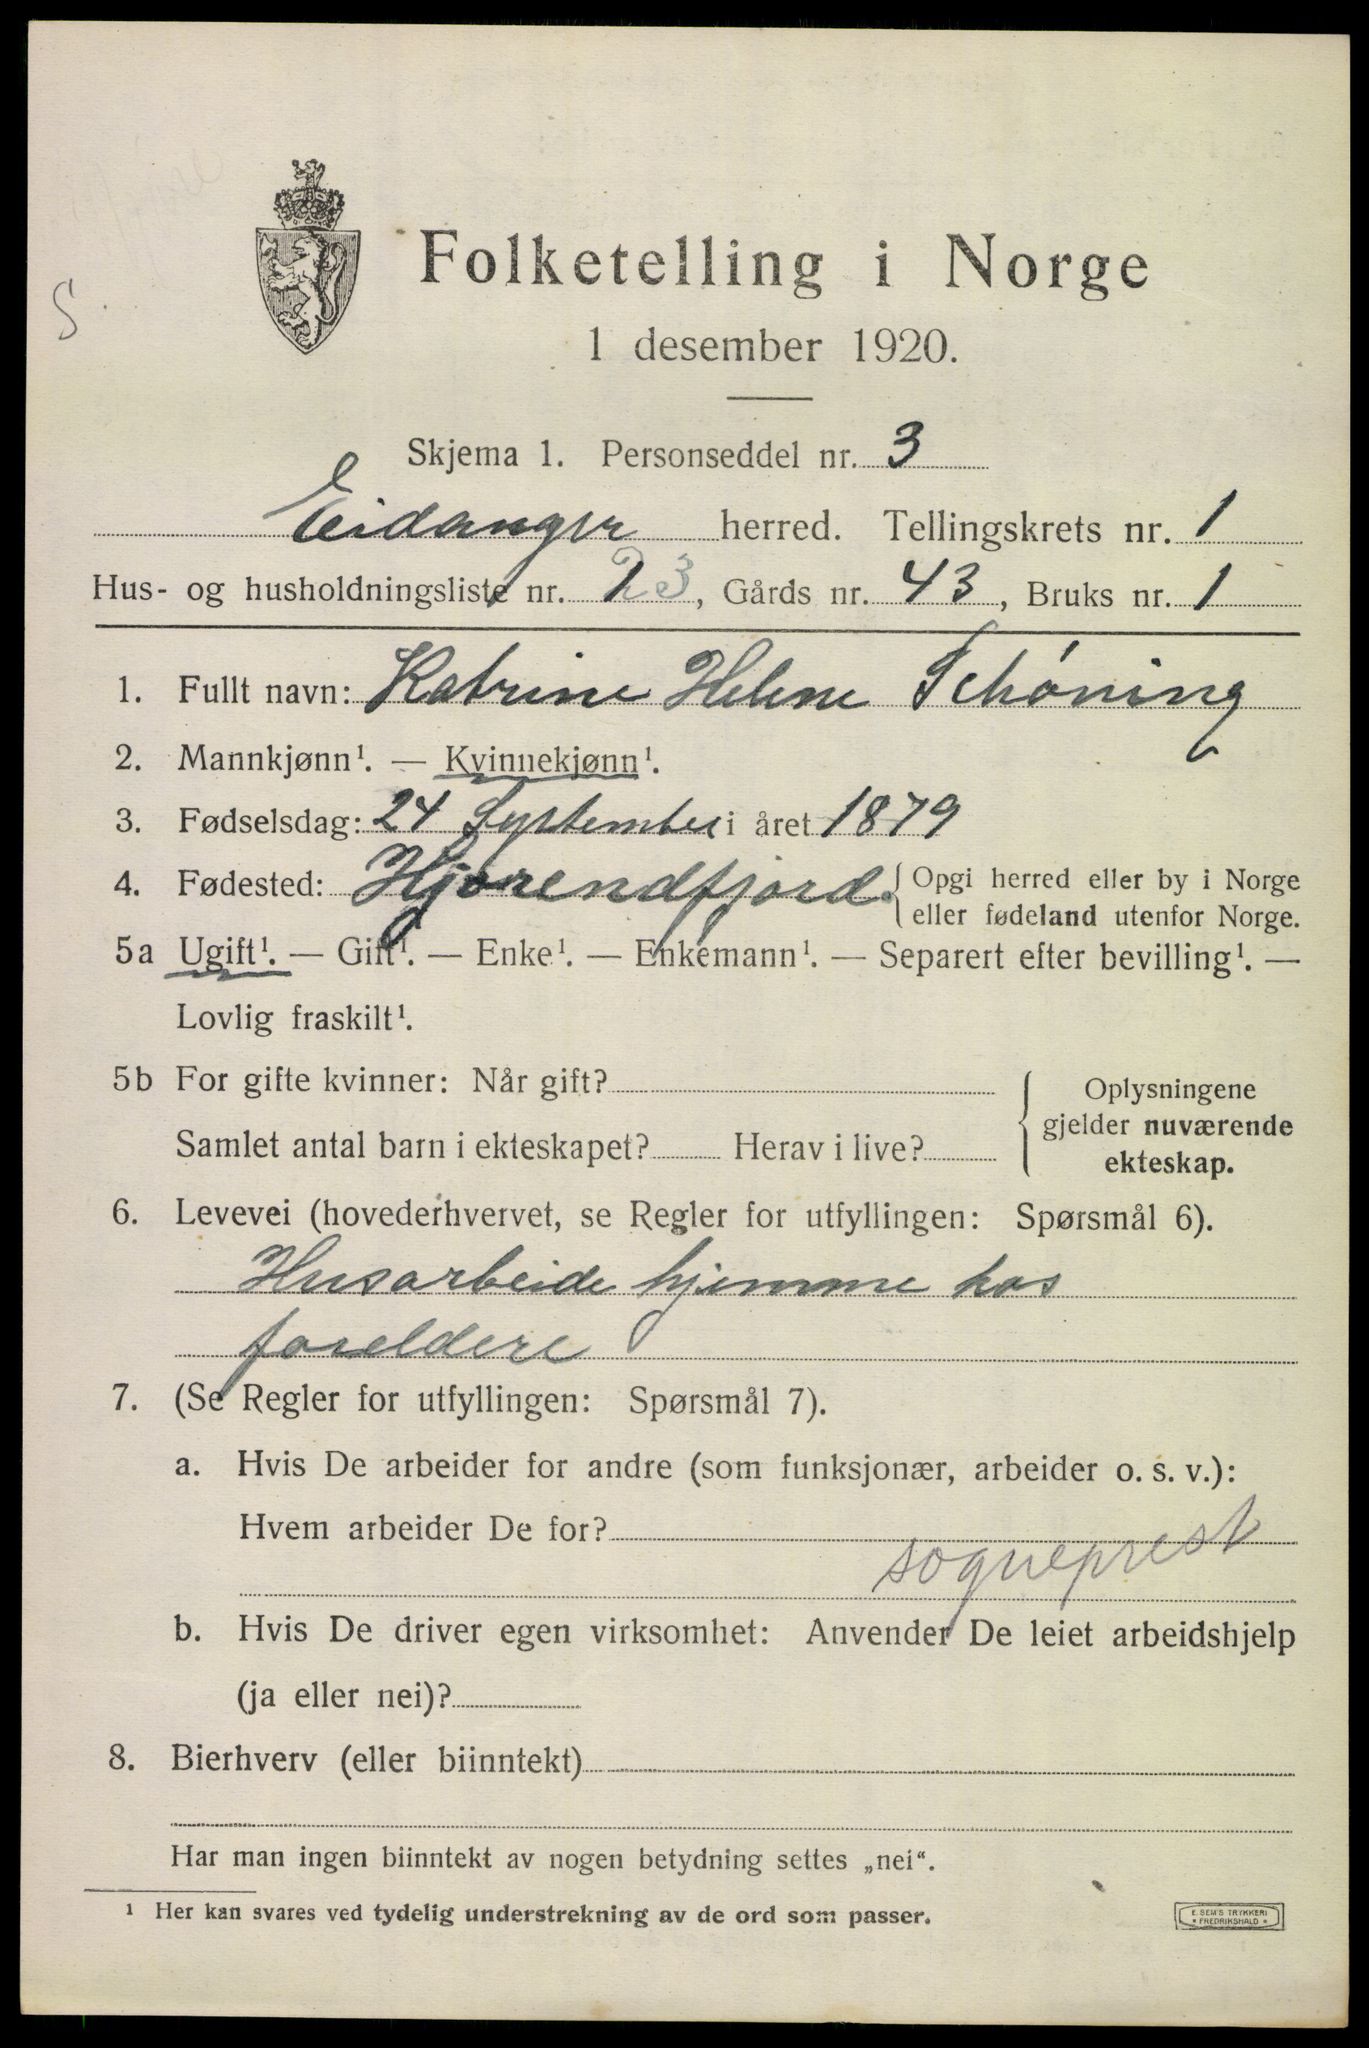 S
Folketelling i Norge
1 desember 1920.
Skjema 1. Personseddel nr. 3
Eidanger herred. Tellingskrets nr. 1
Hus- og husholdningsliste nr. 23, Gårds nr. 43, Bruks nr. 1
1. Fullt navn: Katrine Helene Schøning
2. Mannkjønn¹. — Kvinnekjønn¹.
3. Fødselsdag: 24 September i året 1879
4. Fødested: Hjørendfjord. Opgi herred eller by i Norge
eller fødeland utenfor Norge.
5a Ugift¹. — Gift¹. — Enke¹. — Enkemann¹. — Separert efter bevilling¹. —
Lovlig fraskilt¹.
5b For gifte kvinner: Når gift?
Samlet antal barn i ekteskapet? Herav i live?
Oplysningene
gjelder nuværende
ekteskap.
6. Levevei (hovederhvervet, se Regler for utfyllingen: Spørsmål 6).
Husarbeide hjemme hos
foreldere
7. (Se Regler for utfyllingen: Spørsmål 7).
a. Hvis De arbeider for andre (som funksjonær, arbeider o. s. v.):
Hvem arbeider De for?
sogneprest
b. Hvis De driver egen virksomhet: Anvender De leiet arbeidshjelp
(ja eller nei)?
8. Bierhverv (eller biinntekt)
Har man ingen biinntekt av nogen betydning settes „nei“.
¹ Her kan svares ved tydelig understrekning av de ord som passer.
E. SEM'S TRYKKERI
FREDRIKSHALD